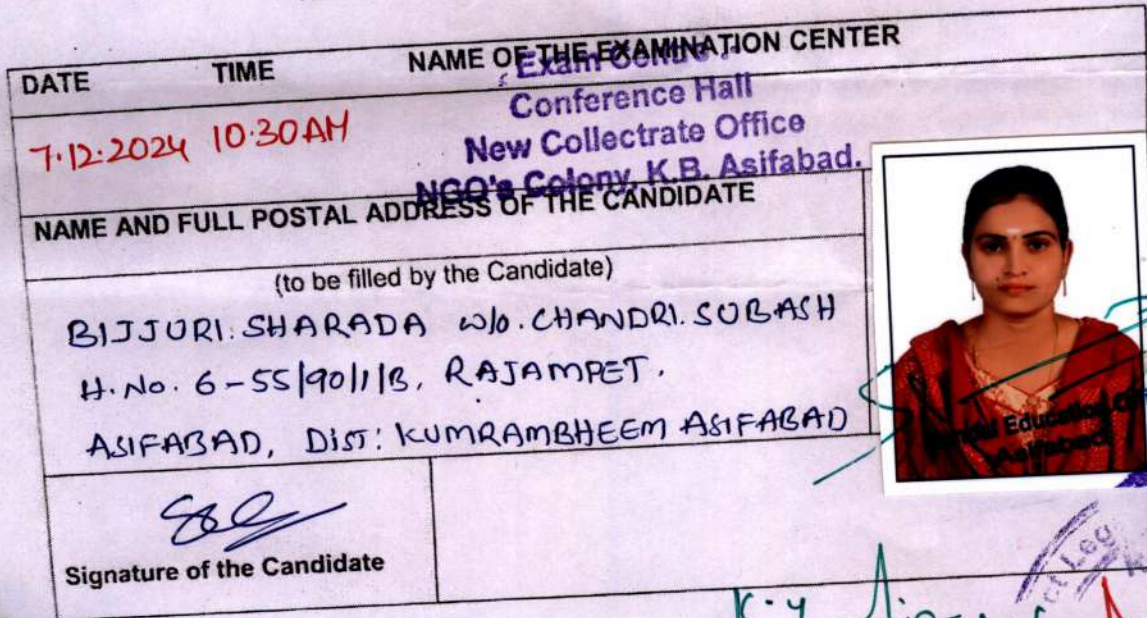 DATE TIME NAME OF THE EXAMINATION CENTER
7.12.2024 10.30AM
Exam Centre :
Conference Hall
New Collectrate Office
NGO's Colony, K.B. Asifabad.
NAME AND FULL POSTAL ADDRESS OF THE CANDIDATE
(to be filled by the Candidate)
BIJJURI. SHARADA W/o. CHANDRI. SUBASH
H. No. 6-55/90/1/B, RAJAMPET.
ASIFABAD, DIST: KUMRAMBHEEM ASIFABAD
Education
Asifabad
Signature of the Candidate